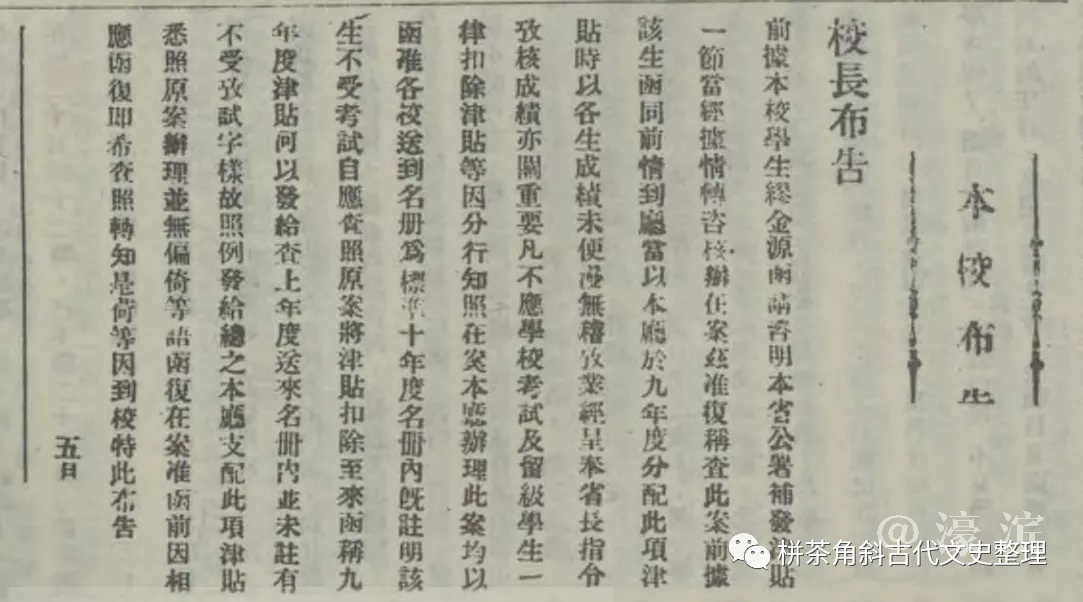 本校布告
校長布告
前據本校學生繆金源函請咨明本省公署補發津貼
一節當經據情轉咨核辦在案茲准復稱查此案前據
該生函同前情到廳當以本廳於九年度分配此項津
貼時以各生成績未便漫無稽攷業經呈奉省長指令
攷核成績亦關重要凡不應學校考試及留級學生一
律扣除津貼等因分行知照在案本廳辦理此案均以
函准各校送到名册爲標準十年度名冊內旣註明該
生不受考試自應查照原案將津貼扣除至來函稱九
年度津貼何以發給查上年度送來名冊內並未註有
不受攷試字樣故照例發給總之本廳支配此項津貼
悉照原案辦理並無偏倚等語函復在案准函前因相
應函復卽希查照轉知是荷等因到校特此布告
五日
@濠滨
栟茶角斜古代文史整理